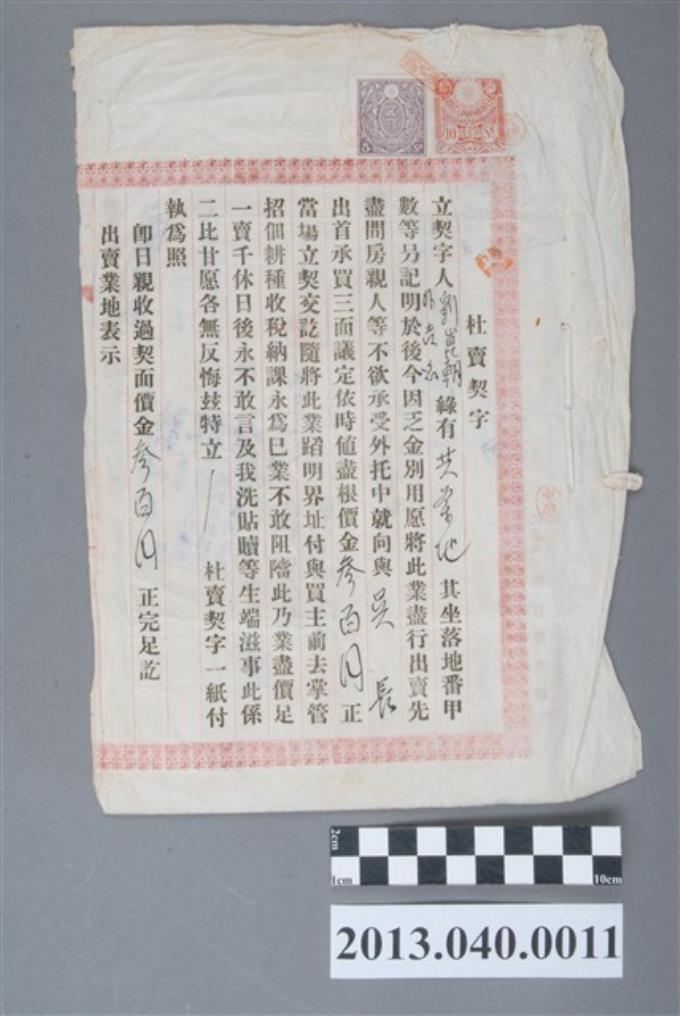 杜賣契字
立契字人劉崑朝 緣有共業地其坐落地番甲
外壹名
數等另記明於後今因乏金別用愿將此業盡行出賣先
盡問房親人等不欲承受外托中就向與吳長
出首承買三面議定依時値盡根價金參百円正
當場立契交訖隨將此業踏明界址付與買主前去掌管
招佃耕種收稅納課永爲己業不敢阻擋此乃業盡價足
一賣千休日後永不敢言及找洗貼贖等生端滋事此係
二比甘愿各無反悔玆特立 杜賣契字一紙付
執爲照
卽日親收過契面價金參百円正完足訖
出賣業地表示
5 Sn
10 Sn
2cm
1cm
10cm
2013.040.0011